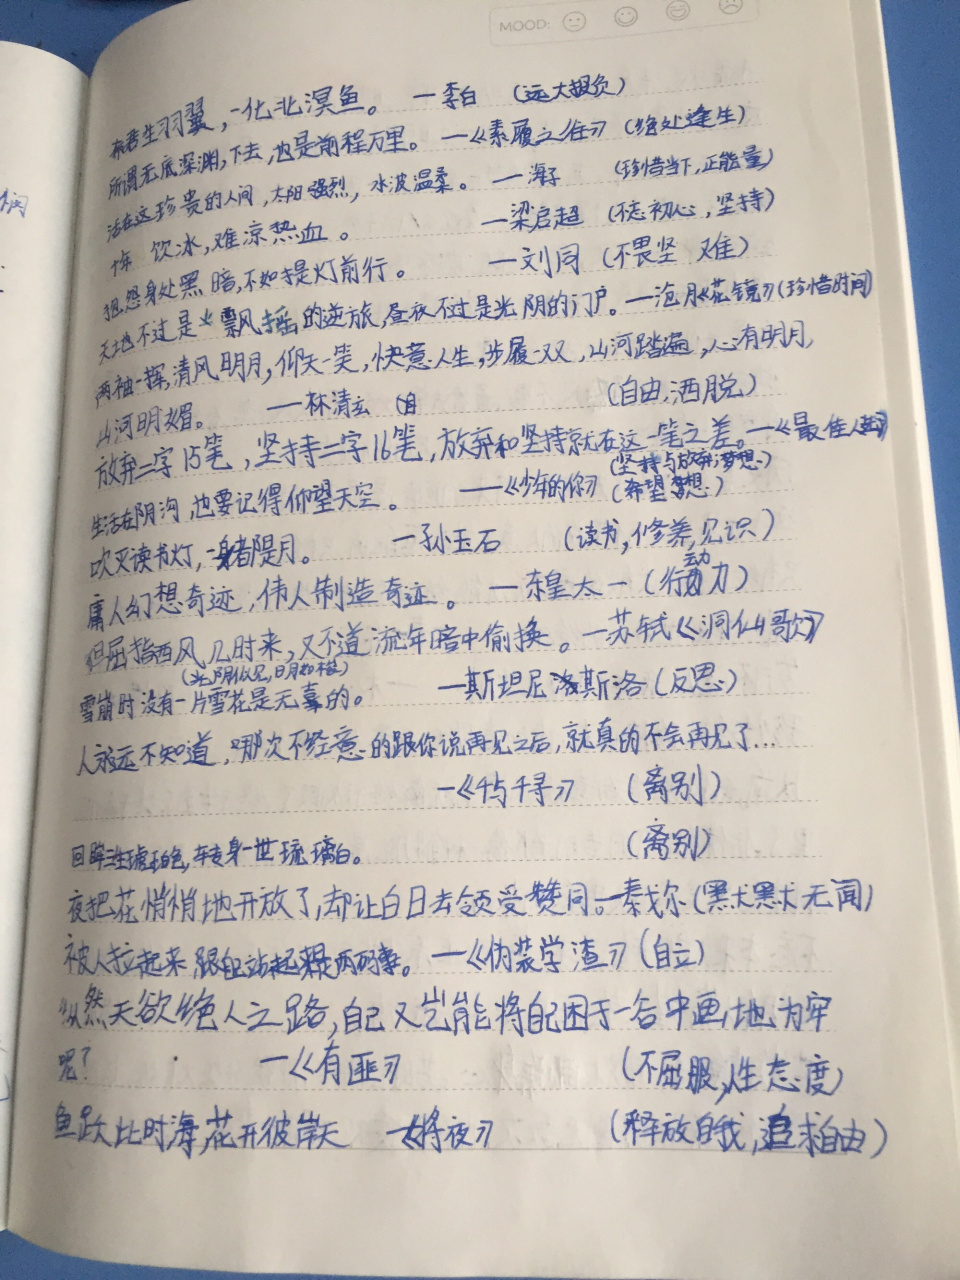 MOOD:
若生羽翼,一化北溟鱼。 —李白 (远大抱负)
所谓无底深渊,下去,也是前程万里。 —《素履之往》 (绝处逢生)
活在这珍贵的人间,太阳强烈,水波温柔。 —海子 (珍惜当下,正能量)
饮冰,难凉热血。 —梁启超 (不忘初心,坚持)
抱怨身处黑暗,不如提灯前行。 —刘同 (不畏坚难)
天地不过是飘摇的逆旅,昼夜不过是光阴的门户。—沧月《花镜》(珍惜时间)
两袖一挥,清风明月,仰天一笑,快意人生,步履一双,山河踏遍,心有明月,
山河明媚。 —林清玄 (自由,洒脱)
放弃二字15笔,坚持二字16笔,放弃和坚持就在这一笔之差。—《最佳
(坚持与放弃,梦想)
生活在阴沟,也要记得仰望天空。 —《少年的你》 (希望梦想)
吹灭读书灯,一身都是月。 —孙玉石 (读书,修养,见识)
庸人幻想奇迹,伟人制造奇迹。 —东皇太一 (行动力)
但屈指西风几时来,又不道流年暗中偷换。—苏轼《洞仙歌》
(光阴似箭,日月如梭)
雪崩时没有一片雪花是无辜的。 —斯坦尼洛斯洛 (反思)
人永远不知道,哪次不经意的跟你说再见之后,就真的不会再见了...
—《千与千寻》 (离别)
回眸三生琥珀色,转身一世琉璃白。 (离别)
夜把花悄悄地开放了,却让白日去领受赞同。—泰戈尔 (默默无闻)
被人拉起来,跟自己站起来是两码事。 —《伪装学渣》 (自立)
纵然天欲绝人之路,自己又岂能将自己困于一谷中画地为牢
呢? —《有匪》 (不屈服,人生态度)
鱼跃此时海,花开彼岸天 —《将夜》 (释放自我,追求自由)